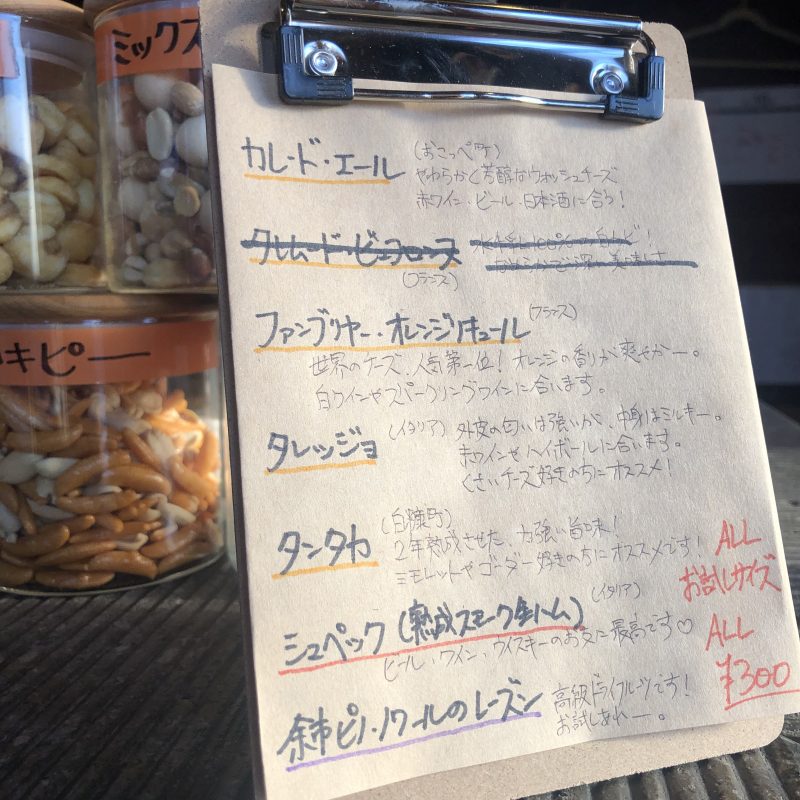 ミックス
キピー
カレ・ド・エール (おこっぺ町)
やわらかく芳醇なウォッシュチーズ
赤ワイン・ビール・日本酒に合う!
クレームド・ビュフローヌ
(フランス)
ファンブリヤー・オレンジリキュール (フランス)
世界のチーズ、人気第一位!オレンジの香りが爽やかー。
白ワインやスパークリングワインに合います。
タレッジョ (イタリア) 外皮の匂いは強いが、中身はミルキー。
赤ワインやハイボールに合います。
くさいチーズ好きの方にオススメ!
タンタカ (白糠町)
2年熟成させた、力強い旨味!
ミモレットやゴーダー好きの方にオススメです!
ALL
お試しサイズ
シュペック(熟成スモーク生ハム) (イタリア)
ビール・ワイン・ウイスキーのお友に最高です♡
ALL
¥300
余市ピノ・ノワールのレーズン 高級ドライフルーツです!
お試しあれー。